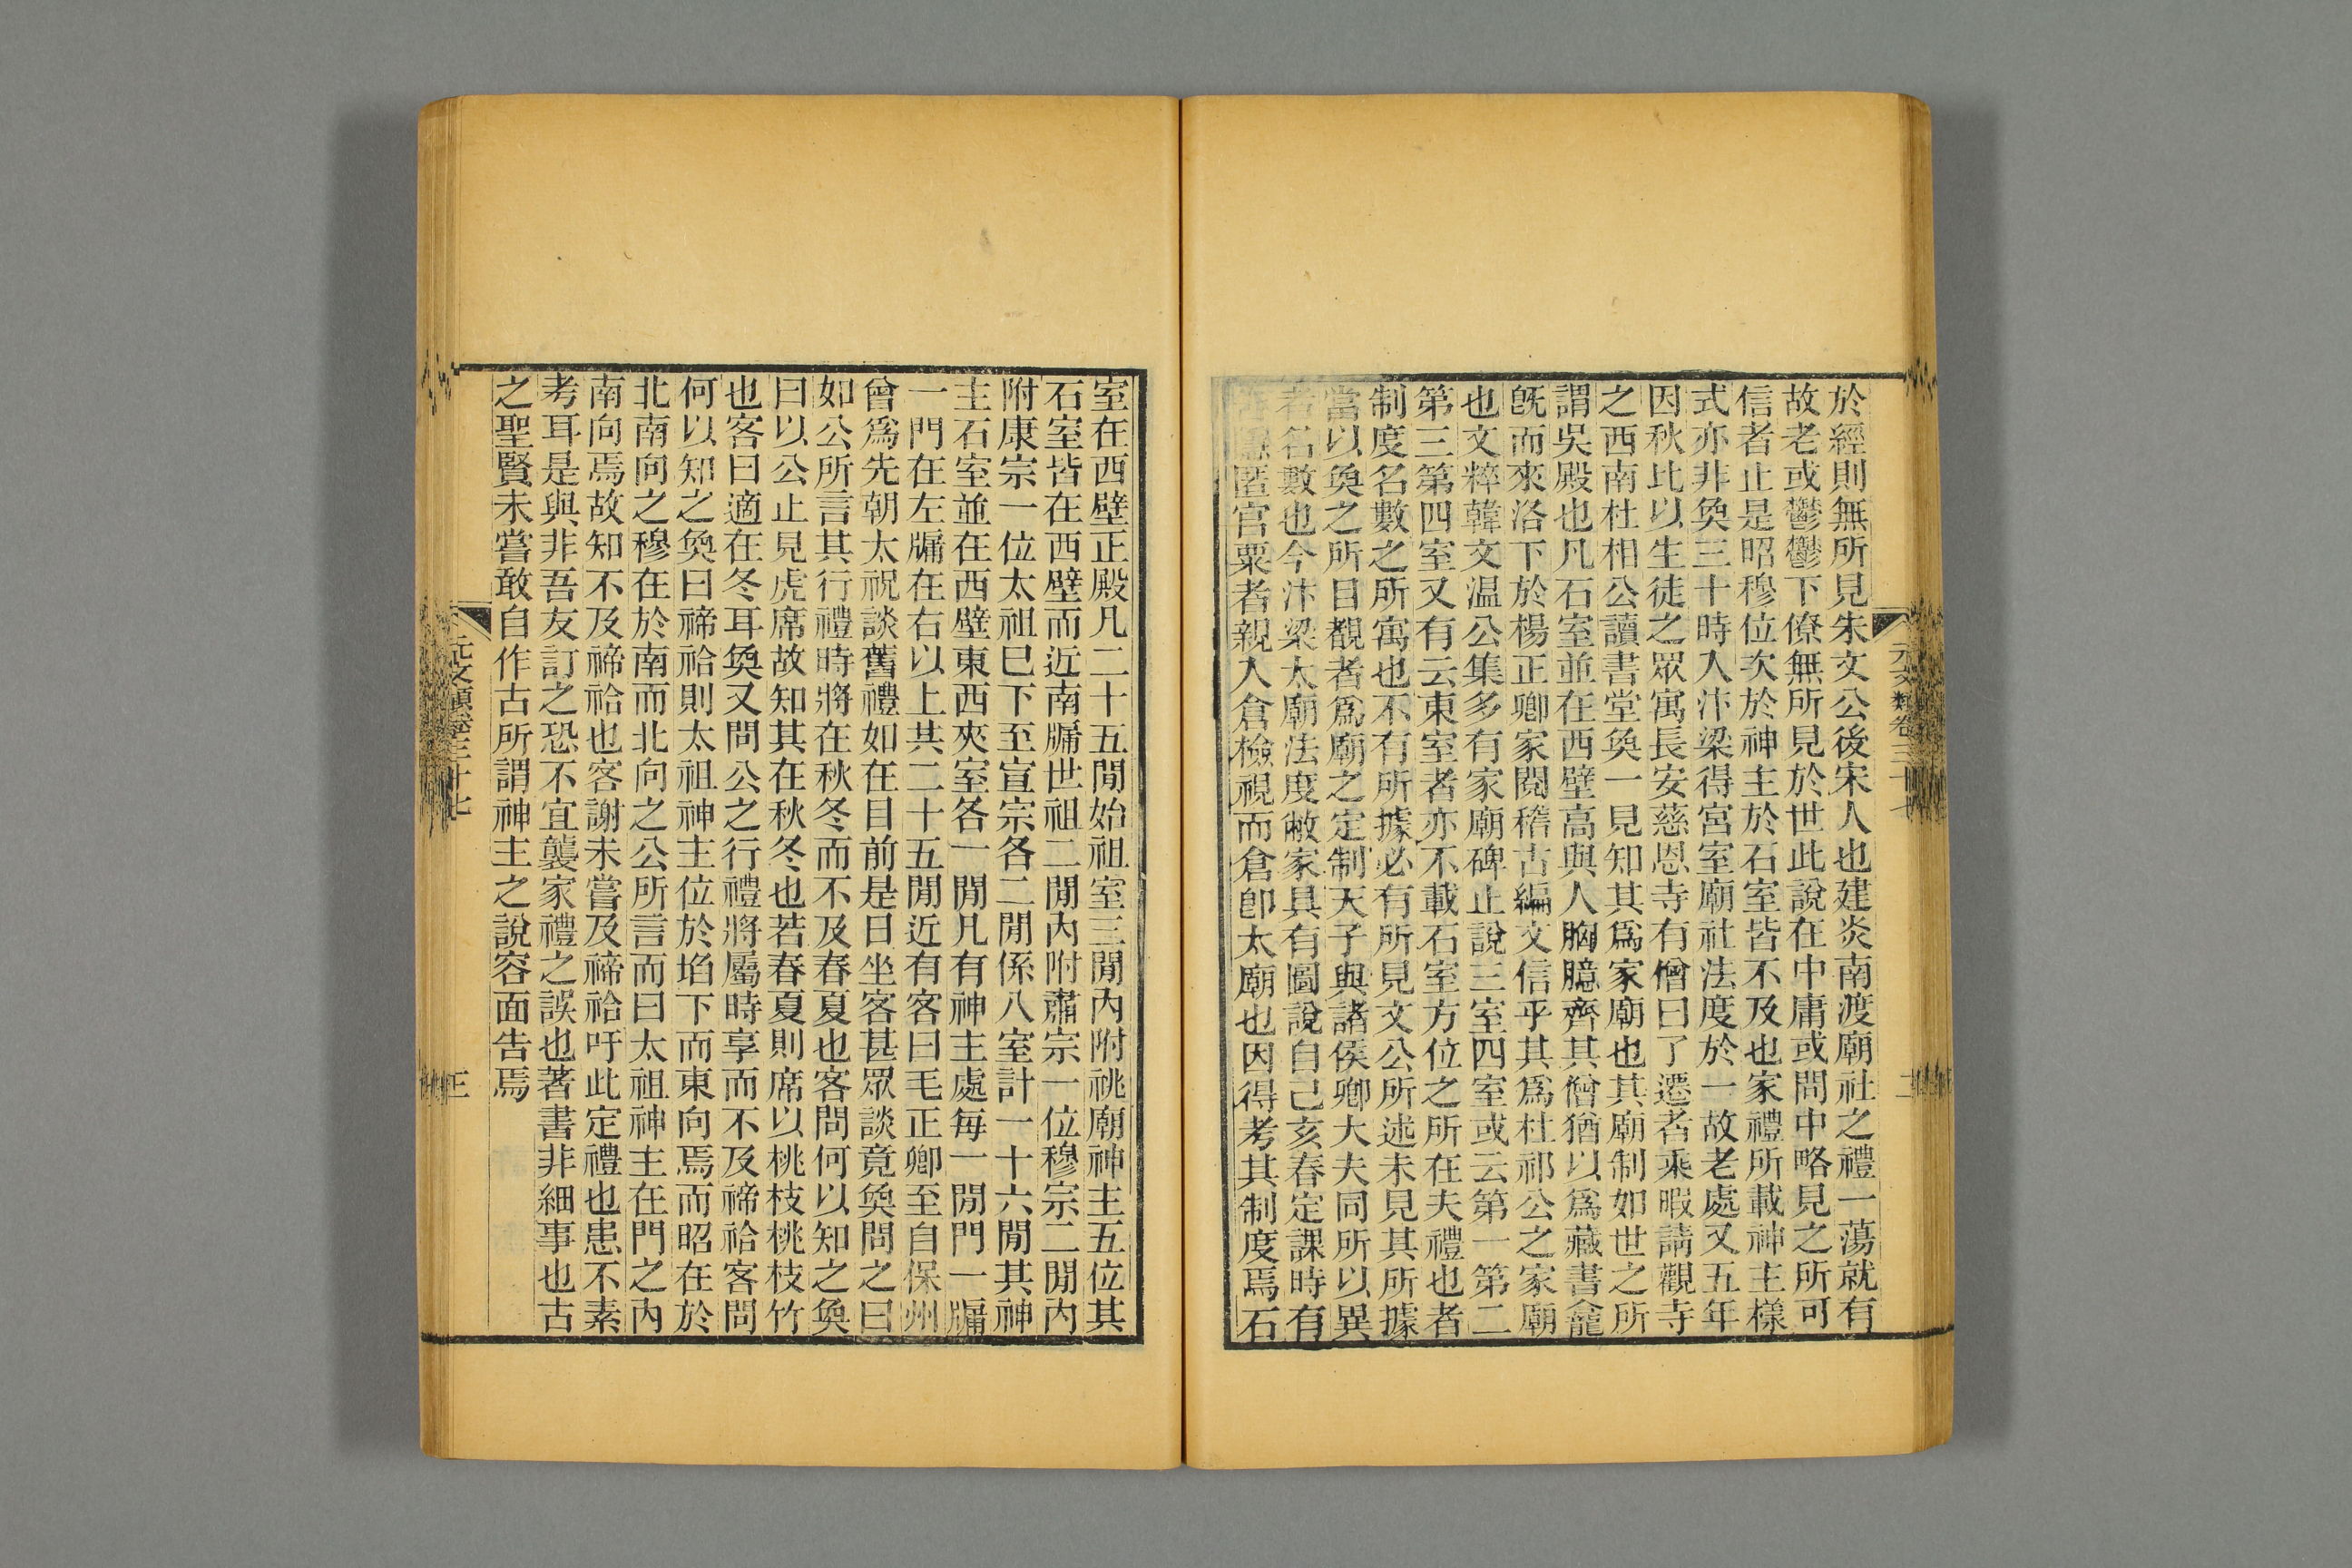 於經則無所見朱文公後宋人也建炎南渡廟社之禮一蕩就有
故老或鬱鬱下僚無所見於世此說在中庸或問中略見之所可
信者止是昭穆位次於神主於石室皆不及也家禮所載神主樣
式亦非奐三十時入汴梁得宮室廟社法度於一故老處又五年
因秋比以生徒之眾寓長安慈恩寺有僧曰了遷者乘暇請觀寺
之西南杜相公讀書堂奐一見知其爲家廟也其廟制如世之所
謂吳殿也凡石室並在西壁高與人胸臆齊其僧猶以爲藏書龕
旣而來洛下於楊正卿家閱稽古編文信乎其爲杜祁公之家廟
也文粹韓文温公集多有家廟碑止說三室四室或云第一第二
第三第四室又有云東室者亦不載石室方位之所在夫禮也者
制度名數之所寓也不有所據必有所見文公所述未見其所據
當以奐之所目覩者爲廟之定制天子與諸侯卿大夫同所以異
者名數也今汴梁太廟法度敝家具有圖說自己亥春定課時有
匿官粟者親入倉檢視而倉卽太廟也因得考其制度焉石
元文類卷三十七
室在西壁正殿凡二十五閒始祖室三閒內附祧廟神主五位其
石室皆在西壁而近南牖世祖二閒內附肅宗一位穆宗二閒內
附康宗一位太祖已下至宣宗各二閒係八室計一十六閒其神
主石室並在西壁東西夾室各一閒凡有神主處每一閒門一牖
一門在左牖在右以上共二十五閒近有客曰毛正卿至自保州
曾爲先朝太祝談舊禮如在目前是日坐客甚眾談竟奐問之曰
如公所言其行禮時將在秋冬而不及春夏也客問何以知之奐
曰以公止見虎席故知其在秋冬也若春夏則席以桃枝桃枝竹
也客曰適在冬耳奐又問公之行禮將屬時享而不及禘祫客問
何以知之奐曰禘祫則太祖神主位於埳下而東向焉而昭在於
北南向之穆在於南而北向之公所言而曰太祖神主在門之內
南向焉故知不及禘祫也客謝未嘗及禘祫吁此定禮也患不素
考耳是與非吾友訂之恐不宜襲家禮之誤也著書非細事也古
之聖賢未嘗敢自作古所謂神主之說容面告焉
元文類卷三十七